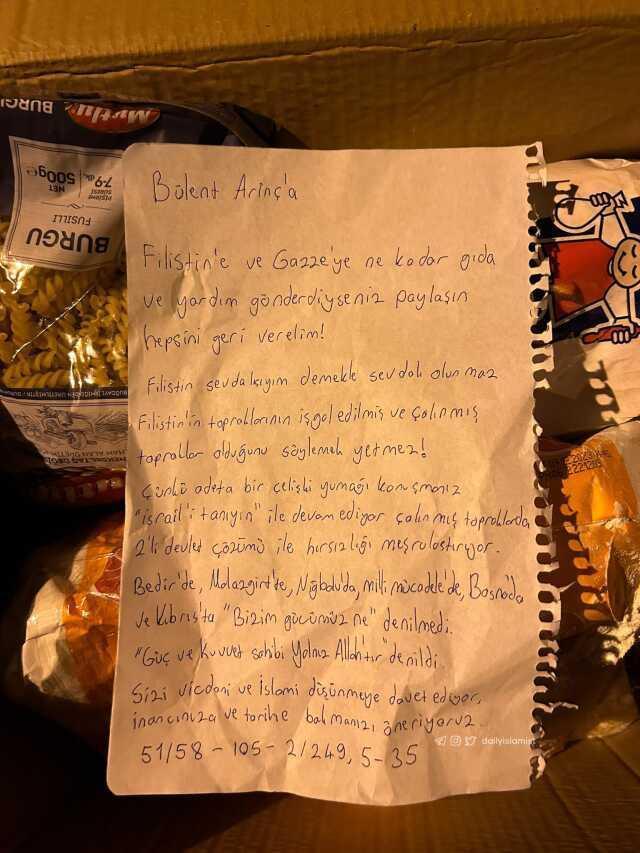 Bülent Arınç'a
Filistin'e ve Gazze'ye ne kadar gıda
ve yardım gönderdiyseniz paylaşın
hepsini geri verelim!
Filistin sevdalıyım demekle sevdalı olunmaz
Filistin'in topraklarının işgal edilmiş ve çalınmış
topraklar olduğunu söylemek yetmez!
Çünkü adeta bir çelişki yumağı konuşmanız
"israil'i tanıyın" ile devam ediyor çalınmış topraklarda
2'li devlet çözümü ile hırsızlığı meşrulaştırıyor.
Bedir'de, Malazgirt'te, Niğbolu'da, milli mücadele'de, Bosna'da
ve Kıbrıs'ta "Bizim gücümüz ne" denilmedi.
"Güç ve Kuvvet sahibi Yalnız Allah'tır" denildi.
Sizi vicdani ve İslami düşünmeye davet ediyor,
inancınıza ve tarihe bakmanızı öneriyoruz.
51/58 - 105 - 2/249, 5-35
dailyislamist
BURGU
Mutlu
NET
500g e
PİŞİRME
SÜRESİ
7-9 dk.
BURGU
FUSILLI